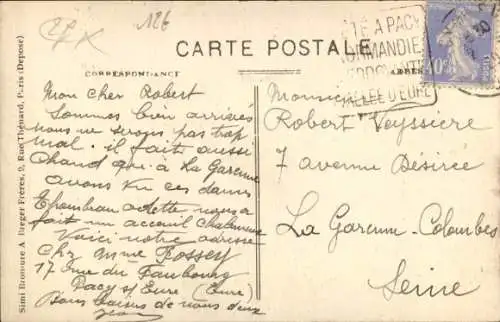 126
CARTE POSTALE
CORRESPONDANCE
ÉTÉ A PACY
NORMANDIE
VALLÉE D'EURE
Mon cher Robert
Sommes bien arrivés
nous ne serons pas trop
mal. il fait aussi
chaud qu'à La Garenne
avons vu ces dames
Epambeau adette nous a
fait un acceuil chaleureux
Voici notre adresse
Chez Mme Rossey
17 rue du Faubourg
Pacy s/ Eure (Eure)
Bons baisers de nous deux
Jean
Monsieur
Robert Veyssière
7 avenue Désirée
La Garenne-Colombes
Seine
Simi Bromure A Breger Frères, 9, Rue Thénard, Paris (Déposé)